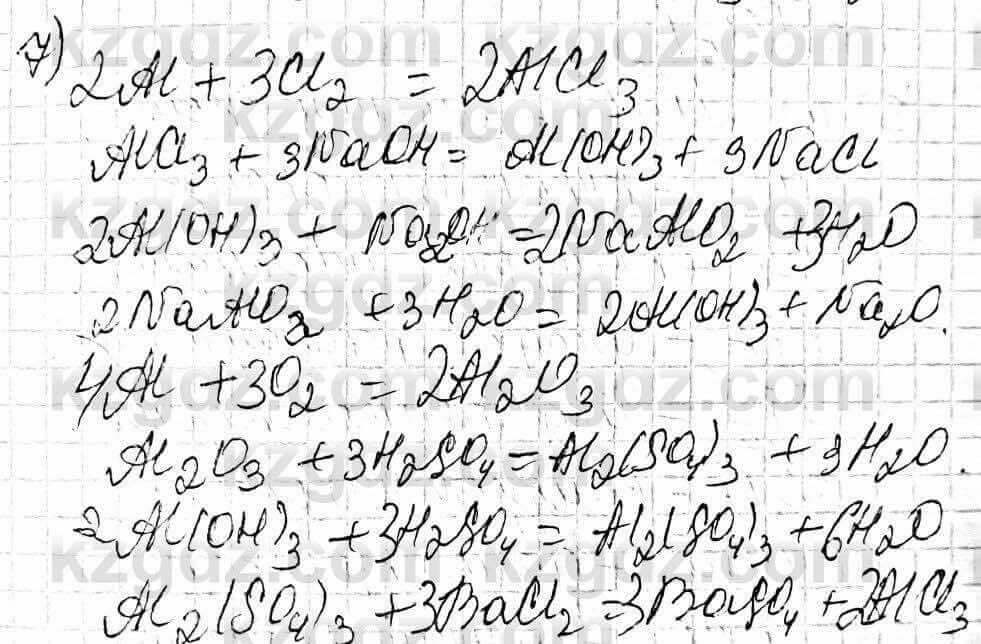 7) 2Al + 3Cl₂ = 2AlCl₃
AlCl₃ + 3NaOH = Al(OH)₃ + 3NaCl
2Al(OH)₃ + Na₂OH = 2NaAlO₂ + 3H₂O
2NaAlO₂ + 3H₂O = 2Al(OH)₃ + Na₂O.
4Al + 3O₂ = 2Al₂O₃
Al₂O₃ + 3H₂SO₄ = Al₂(SO₄)₃ + 3H₂O.
2Al(OH)₃ + 3H₂SO₄ = Al₂(SO₄)₃ + 6H₂O
Al₂(SO₄)₃ + 3BaCl₂ = 3BaSO₄ + 2AlCl₃